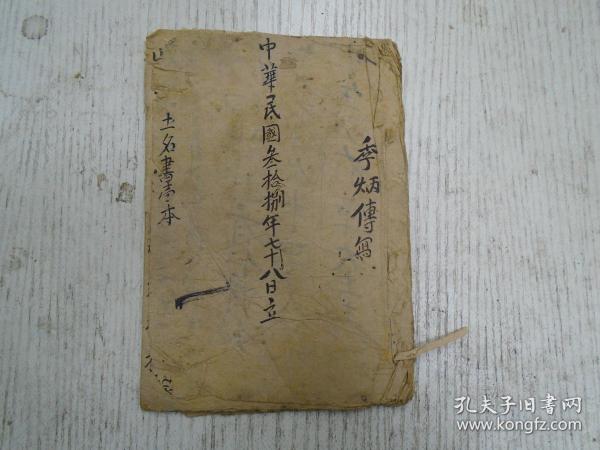 季炳傳寫
中華民國叁拾捌年七十八日立
土名書壹本
孔夫子旧书网
www.kongfz.com